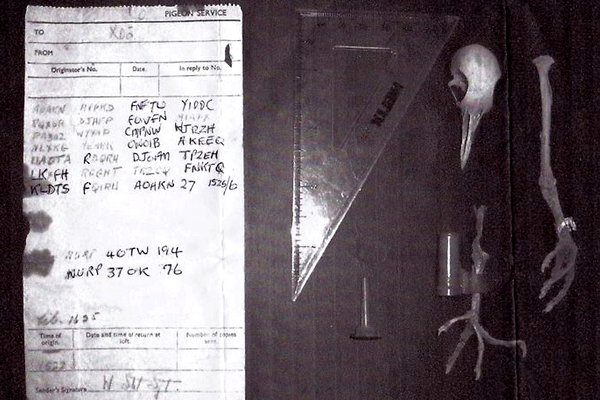 PIGEON SERVICE
TO X02
FROM
Originator's No. Date. In reply to No.
AOAKN HVPKD FNFTW YIDDC
RQXSR DJHFP GOVFN
PABUZ WYYNP CMPNW HJRZH
NLXKG CNOIB AKEEQ
UAOTA RBQRH DJOFM TPZEH
LKXGH RGGHT FNKTQ
KLDTS FQIRW AOAKN 27 1525/6
NURP 40TW 194
NURP 37 OK 76
1625
Time of origin. Date and time of return at loft. Number of copies sent.
1522
Sender's Signature